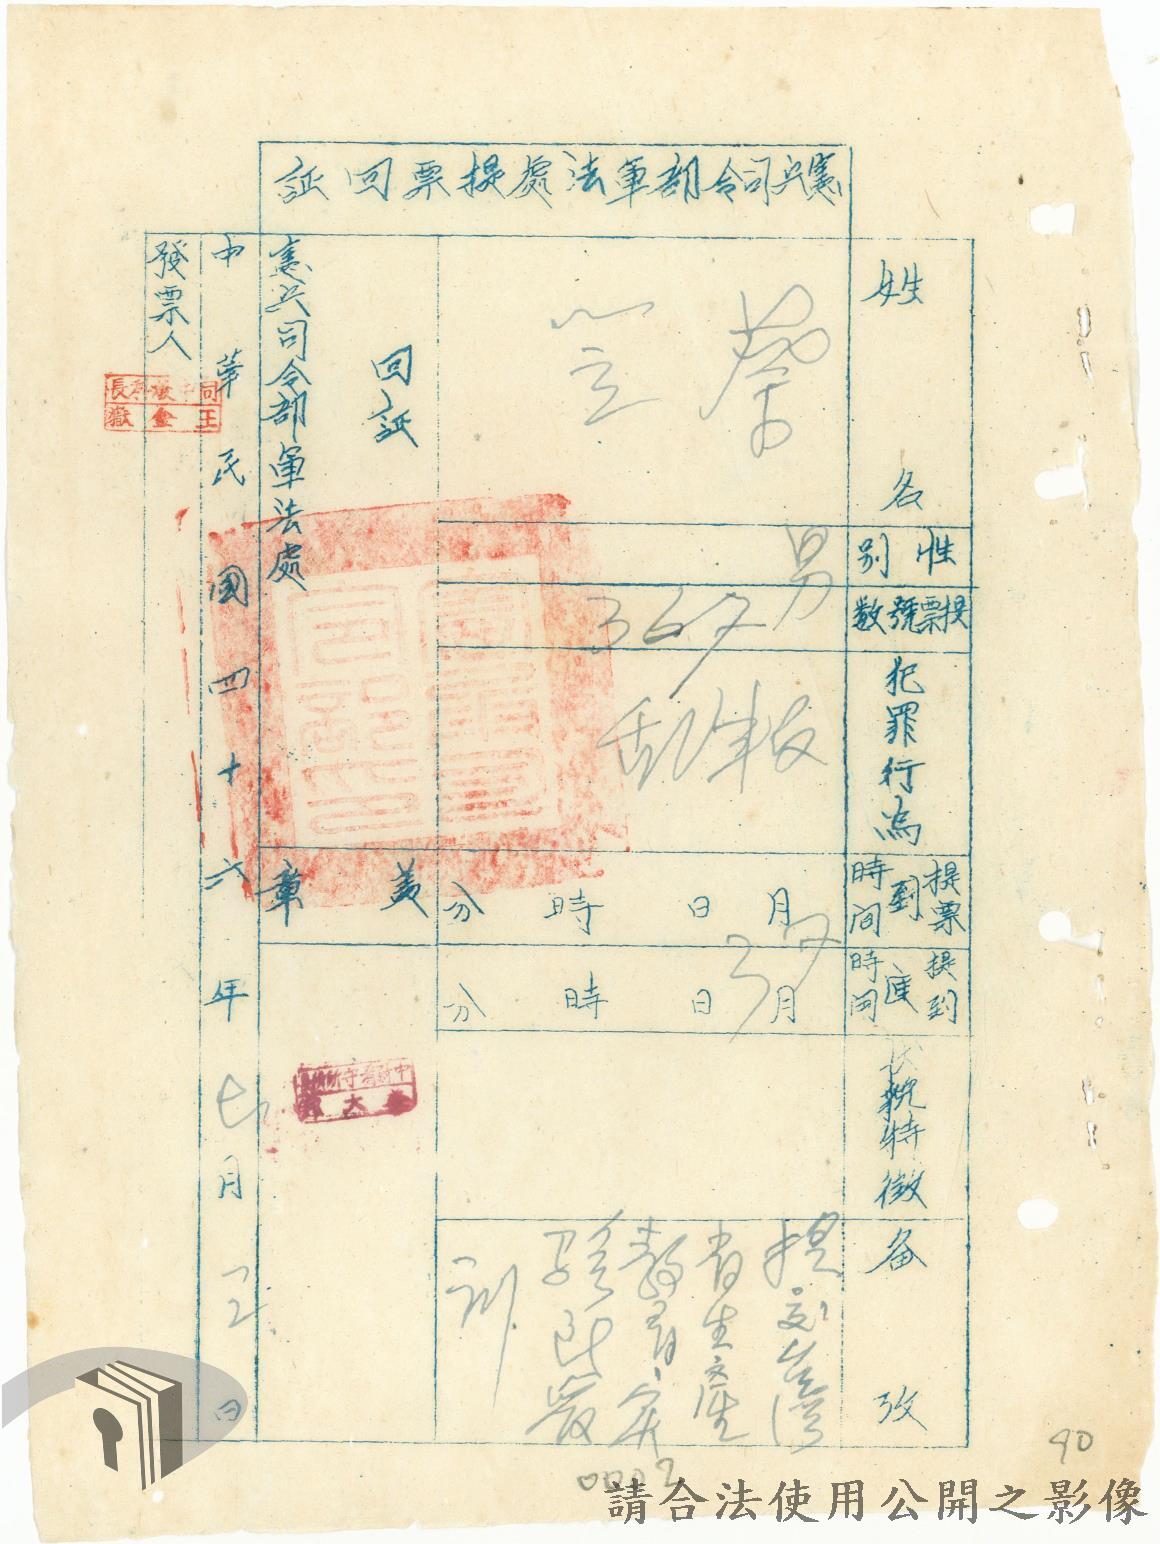 憲兵司令部軍法處提票回証
姓名
性別
男
提票號數
犯罪行為
叛乱
提票到時間
月 日 時 分
提到庭時間
月 日 時 分
狀貌特徵
备攷
提交台灣
省生產
教育實
驗所嚴
訓
回証
憲兵司令部軍法處
蓋章
中華民國四十六年七月 日
發票人
王金嶽
90
請合法使用公開之影像